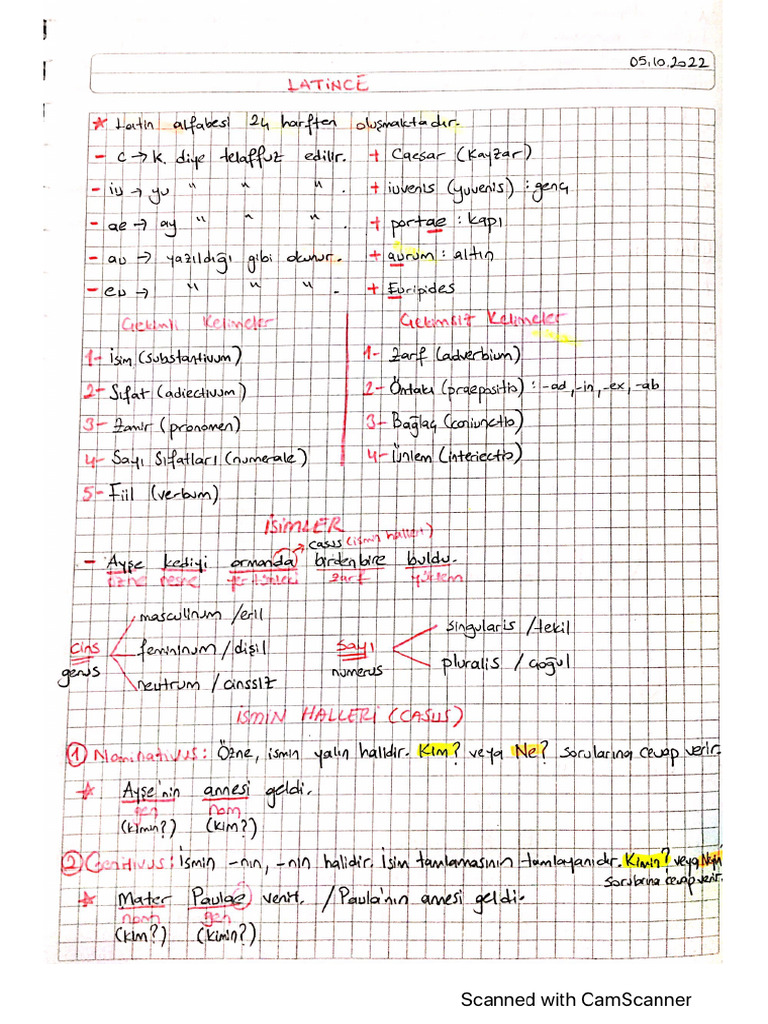 05.10.2022
LATİNCE
* Latin alfabesi 24 harften oluşmaktadır.
- c → k. diye telaffuz edilir. + Caesar (Kayzar)
- iu → yu " " " . + iuvenis (yuvenis) : genç
- ae → ay " " " . + portae : kapı
- au → yazıldığı gibi okunur. + aurum : altın
- eu → " " " . + Euripides
Çekimli Kelimeler
Çekimsiz Kelimeler
1- İsim (substantivum)
1- Zarf (adverbium)
2- Sıfat (adiectivum)
2- Öntakı (praepositio) : -ad, -in, -ex, -ab
3- Zamir (pronomen)
3- Bağlaç (coniunctio)
4- Sayı Sıfatları (numerale)
4- Ünlem (interiectio)
5- Fiil (verbum)
İSİMLER
→ casus (ismin halleri)
- Ayşe kediyi ormanda birdenbire buldu.
özne nesne yer tümleci zarf yüklem
masculinum / eril
singularis / tekil
cins femininum / dişil sayı
genus numerus pluralis / çoğul
neutrum / cinssiz
İSMİN HALLERİ (CASUS)
1 Nominativus : Özne, ismin yalın halidir. Kim? veya Ne? sorularına cevap verir.
* Ayşe'nin annesi geldi.
gen nom
(kimin?) (kim?)
2 Genitivus : İsmin -nın, -nin halidir. İsim tamlamasının tamlayanıdır. Kimin? veya Neyin
sorularına cevap verir.
* Mater Paulae venit. / Paula'nın annesi geldi.
nom gen
(kim?) (kimin?)
Scanned with CamScanner